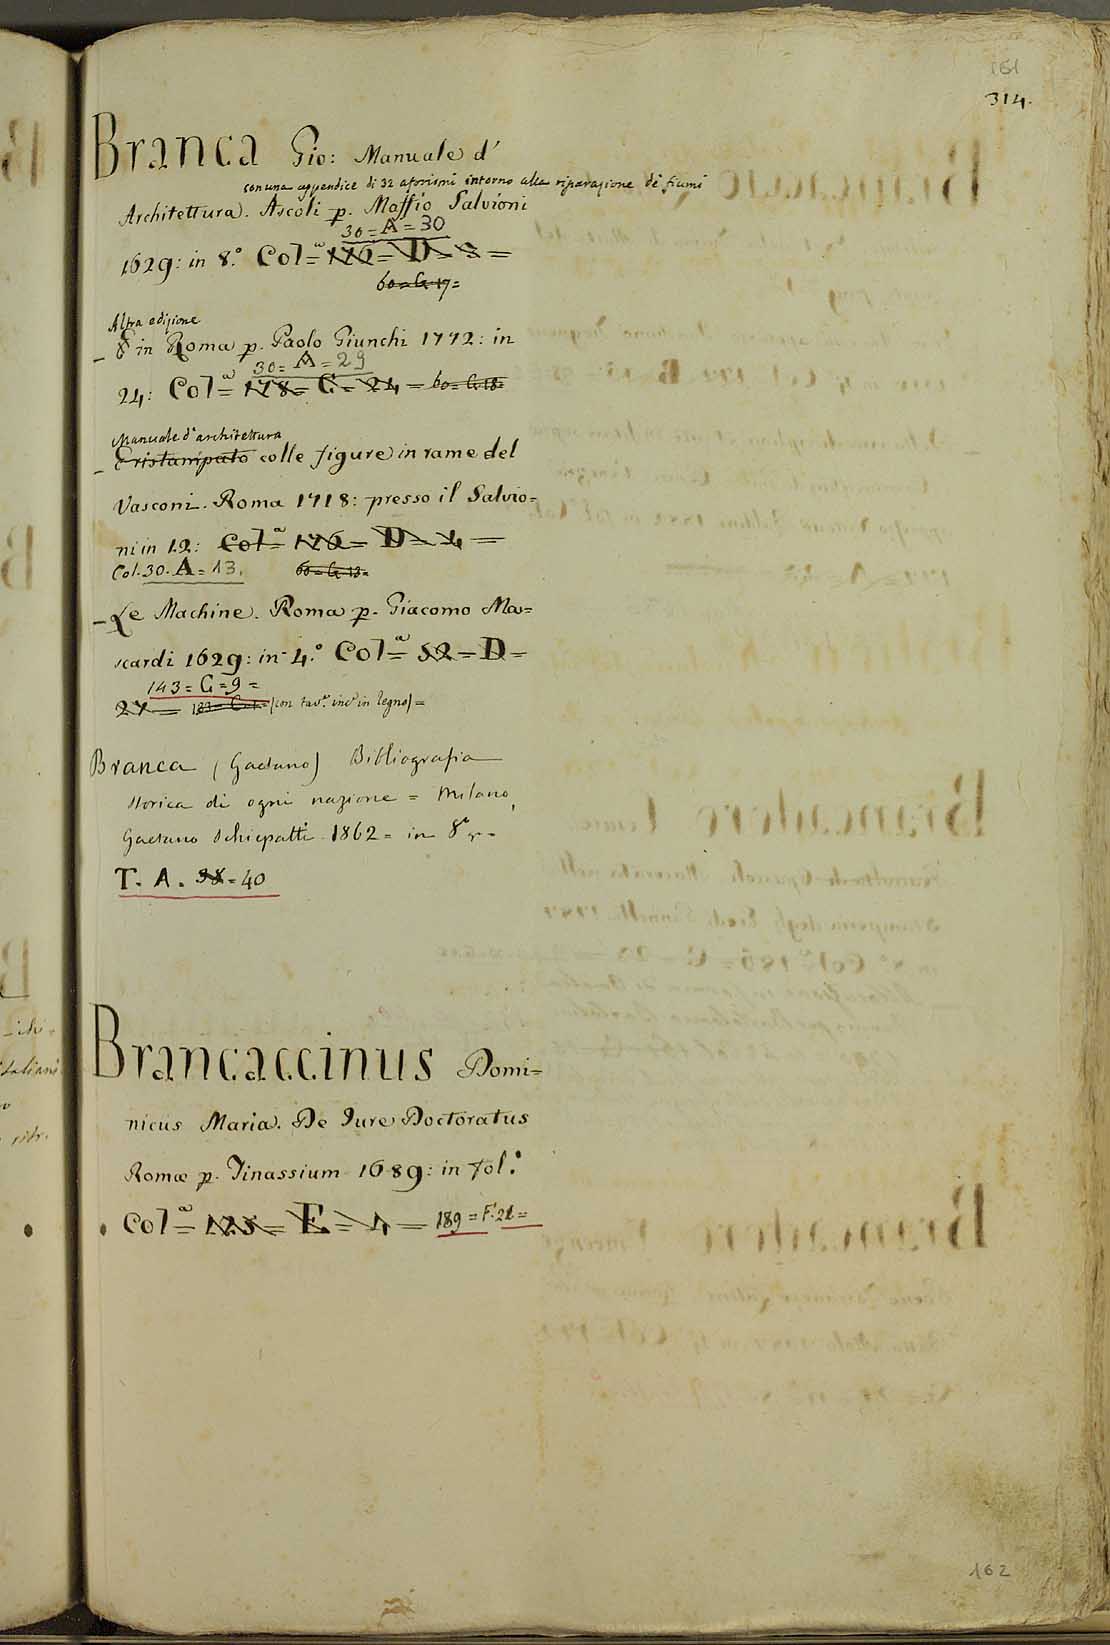 161
314.
Branca Gio: Manuale d'
con una appendice di 32 aforismi intorno alla riparazione de' fiumi
Architettura. Ascoli p. Maffio Salvioni
30 = A = 30
1629: in 8.° Col=ª 176 = D = 3 =
60 = G. 17 =
Altra edizione
– E in Roma p. Paolo Giunchi 1772: in
30 = A = 29
24: Col=ª 178 = C = 24 = 60 = G. 18 =
Manuale d'architettura
– E ristampato colle figure in rame del
Vasconi. Roma 1718: presso il Salvio=
ni in 12: Col=ª 176 = D = 4 =
Col. 30. A = 13. 60 = G. 13 =
– Le Machine. Roma p. Giacomo Ma=
scardi 1629: in 4.° Col=ª 52 = D =
143 = G = 9 =
27 = (con tav.e inc.e in legno) =
Branca (Gaetano) Bibliografia
storica di ogni nazione = Milano,
Gaetano Schiepatti 1862 = in 8°
T. A. 38 = 40
Brancaccinus Domi=
nicus Maria. De Jure Doctoratus
Romæ p. Tinassium 1689: in fol.°
Col=ª 125 = E = 4 = 189 = F. 21 =
162